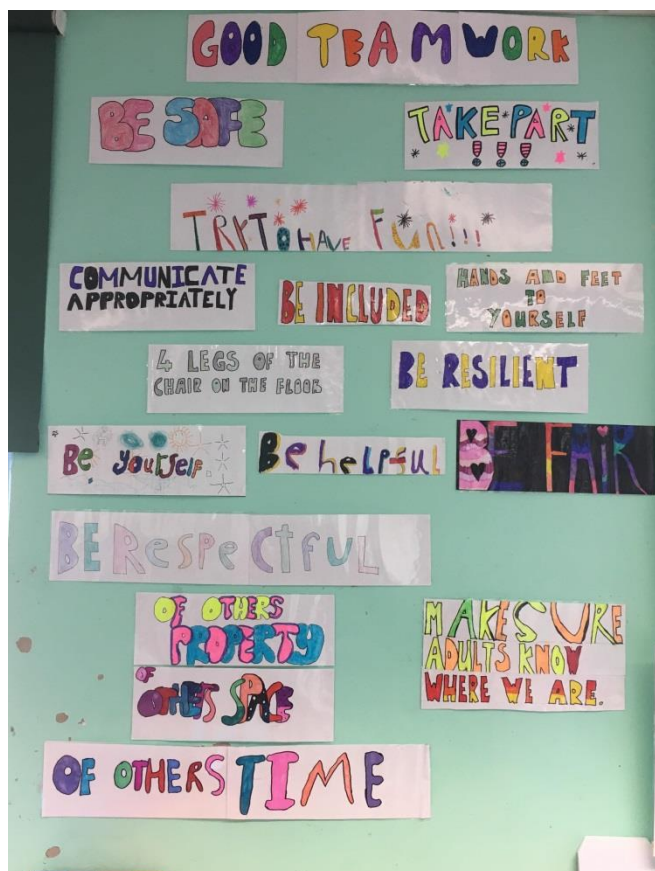 GOOD TEAMWORK
BE SAFE
TAKE PART
!!!
TRY TO HAVE FUN!!!
COMMUNICATE
APPROPRIATELY
BE INCLUDED
HANDS AND FEET
TO
YOURSELF
4 LEGS OF THE
CHAIR ON THE FLOOR
BE RESILIENT
Be yourself.
Be helpful
BE FAIR
BE RespeCtfUL
OF OTHERS
PROPERTY
OF
OTHERS SPACE
MAKE SURE
ADULTS KNOW
WHERE WE ARE.
OF OTHERS TIME